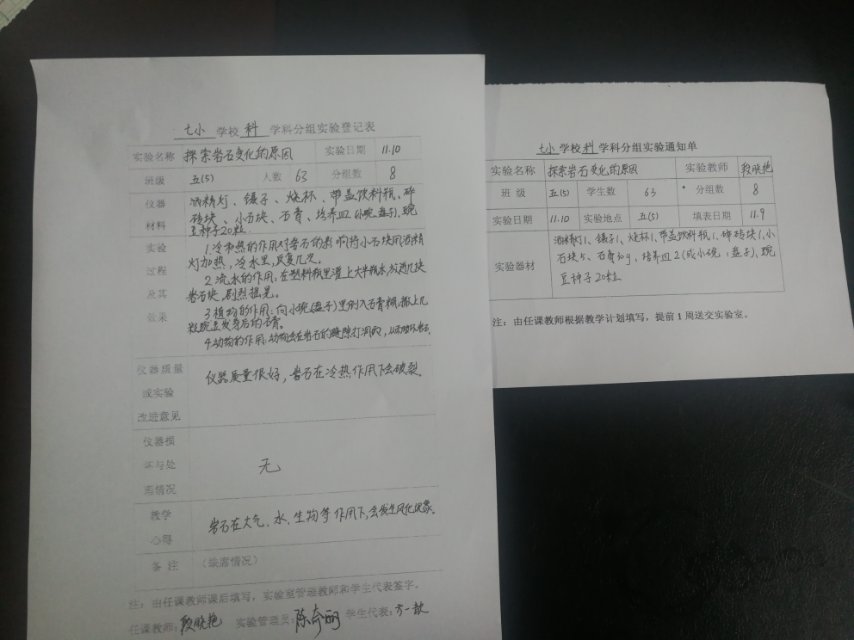 七小 学校 科 学科分组实验登记表
实验名称 探索岩石变化的原因 实验日期 11.10
班级 五(5) 人数 63 分组数 8
仪器 酒精灯、镊子、烧杯、带盖饮料瓶、碎
材料 砖块、小石块、石膏、培养皿(小碗、盘子)、豌
豆种子20粒.
实验 1.冷和热的作用对岩石的影响将小石块用酒精
过程 灯加热,冷水里,反复几次.
及其 2.流水的作用:在塑料瓶里灌上大半瓶水,放进几块
效果 岩石块,剧烈摇晃.
3.植物的作用:向小碗(盘子)里倒入石膏糊,撒上几
粒豌豆发芽后的石膏.
4.动物的作用:动物会在岩石的缝隙打洞穴,
仪器质量
或实验 仪器质量很好,岩石在冷热作用下会破裂.
改进意见
仪器损
坏与处 无
理情况
教学 岩石在大气、水、生物等作用下,会发生风化现象.
心得
备 注 (缺席情况)
注:由任课教师课后填写,实验室管理教师和学生代表签字。
任课教师:段晓艳 实验管理员:陈奇丽 学生代表:
七小 学校 科 学科分组实验通知单
实验名称 探索岩石变化的原因 实验教师 段晓艳
班 级 五(5) 学生数 63 分组数 8
实验日期 11.10 实验地点 五(5) 填表日期 11.9
实验器材 酒精灯1、镊子1、烧杯1、带盖饮料瓶1、碎砖块1、小
石块5、石膏30g、培养皿2(或小碗、盘子)、豌
豆种子20粒.
注:由任课教师根据教学计划填写,提前1周送交实验室。